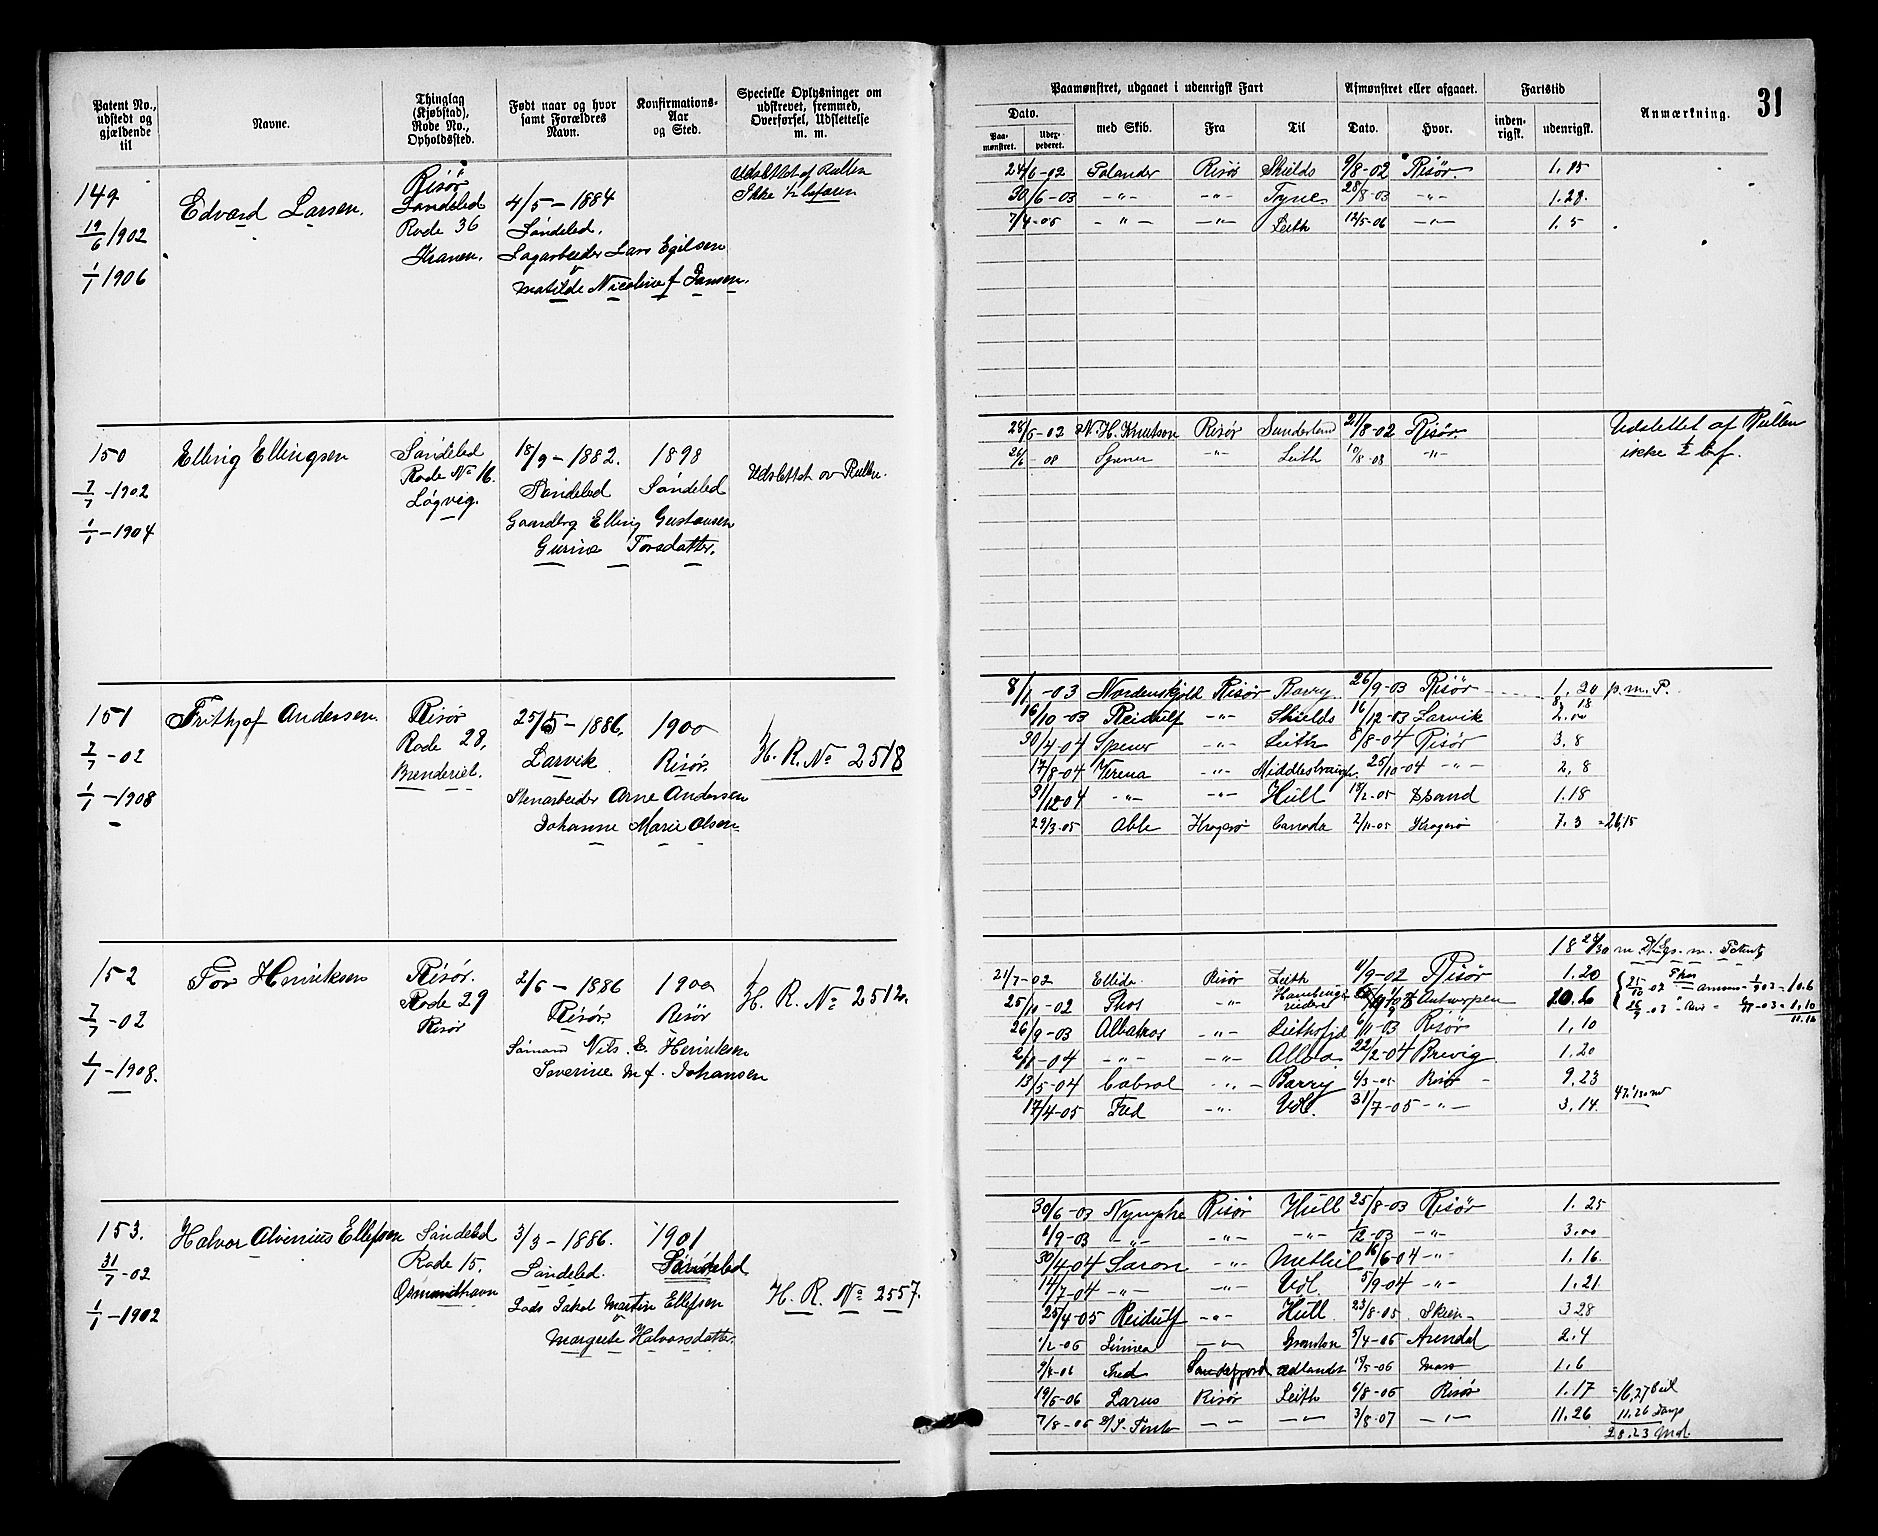 Patent No., udstedt og gjældende til
Navne.
Thinglag (Kjøbstad), Rode No., Opholdssted.
Født naar og hvor samt Forældres Navn.
Konfirmations-Aar og Sted.
Specielle Oplysninger om udskrevet, fremmed, Overførsel, Udslettelse m. m.
Paamønstret, udgaaet i udenrigsk Fart
Afmønstret eller afgaaet.
Fartstid
Anmærkning.
31
Dato.
med Skib.
Fra
Til
Dato.
Hvor.
inden-rigsk.
udenrigsk.
Paa-mønstret.
149
19/6 1902
1/1 1906
Edvard Larsen.
Risør
Søndeled
Rode 36
Kranen.
4/5 - 1884
Søndeled.
Sagarbeider Lars Egilsen
Matilde Nicoline f Jansen.
Udslettet af Rullen
Ikke 1/2 befaren
24/6-02 Palander Risør Shields 9/8-02 Risør. 1.15
30/6-03 -"- -"- Tyne 28/8-03 -"- 1.28.
7/4-05 -"- -"- Leith 12/5-06 -"- 1.5
150
7/7-1902
1/1-1904
Elling Ellingsen
Søndeled
Rode No 16.
Løgvig.
18/9-1882.
Søndeled
Gaardbrg Elling Gustavsen
Gurine Torsdatter.
1898
Søndeled
Udslettet av Rullen.
28/6-02 N. H. Knutson Risør Sunderland 21/8-02 Risør.
26/6-08 Spener -"- Leith 10/8-08 -"-
Udslettet af Rullen
ikke 1/2 bef.
151
7/7-02
1/1-1908
Frithjof Andersen
Risør
Rode 28,
25/5-1886.
Larvik
Stenarbeider Arne Andersen
Johanne Marie Olsen
1900
Risør.
H. R. No 2518
8/1-03 Nordenskjold Risør Barry 26/9-03 Risør 8, 18
1.20 p.m.P.
16/10-03 Reidulf -"- Shields 16/12-03 Larvik 2.00
30/4-04 Spener -"- Leith 8/8-04 Risør 3.8
17/8-04 Verena -"- Middlesbraugh. 25/10-04 -"- 2,8
31/12 04 -"- -"- Hull 18/2-05 1.18
29/3-05 Able Kragerø Canada 2/11-05 Kragerø 7.3 =26,15
152
7/7-02
1/1-1908.
Tor Henriksen
Risør.
Rode 29
Risør
2/6-1886
Risør.
Sømand Nils E. Henriksen
Severine M f. Johansen
1900
Risør
H. R. No 2512.
21/7-02 Ellida Risør Leith 11/9-02 Risør 1.20
25/10-02 Thos -"- Antwerpen 10.6
26/9-03 Albatros -"- Leithsfjd 6/11-03 Risør 1,10
2/1-04 -"- -"- Alloa 22/2-04 Brevig 1.20
13/5-04 Cabral -"- Barry 6/3-05 Risør 9,23
17/4-05 Fred -"- Udl. 31/7-05 -"- 3,14.
153.
31/7-02
1/1-1902
Halvor Alvinius Ellefsen
Søndeled
Rode 15.
Osmundhavn
3/3-1886.
Søndeled.
Lods Jakob Martin Ellefsen
Margrete Halvorsdatter.
1901
Søndeled
H. R. No 2557.
30/6-03 Nymphe Risør Hull 25/8-03 Risør 1.25
1/9-03 -"- -"- -"- 1/12-03 -"- 3.00
30/4-04 Saron -"- Methil 16/6-04 -"- 1.16.
14/7-04 -"- -"- Udl. 5/9-04 -"- 1.21
25/4-05 Reidulf -"- Hull 23/8-05 Skien 3 28
1/2-06 Linnea -"- Granton 5/4-06 Arendal 2.4
9/4-06 Fred Sandefjord Udlandet 15/5-06 Moss 1.6
19/5-06 Larus Risør Leith 6/8-06 Risør 1.17 =16,27 Seil
7/8-06 -"- -"- 3/8-07 -"- 11.26 11.26 Damp
28.23 Md.